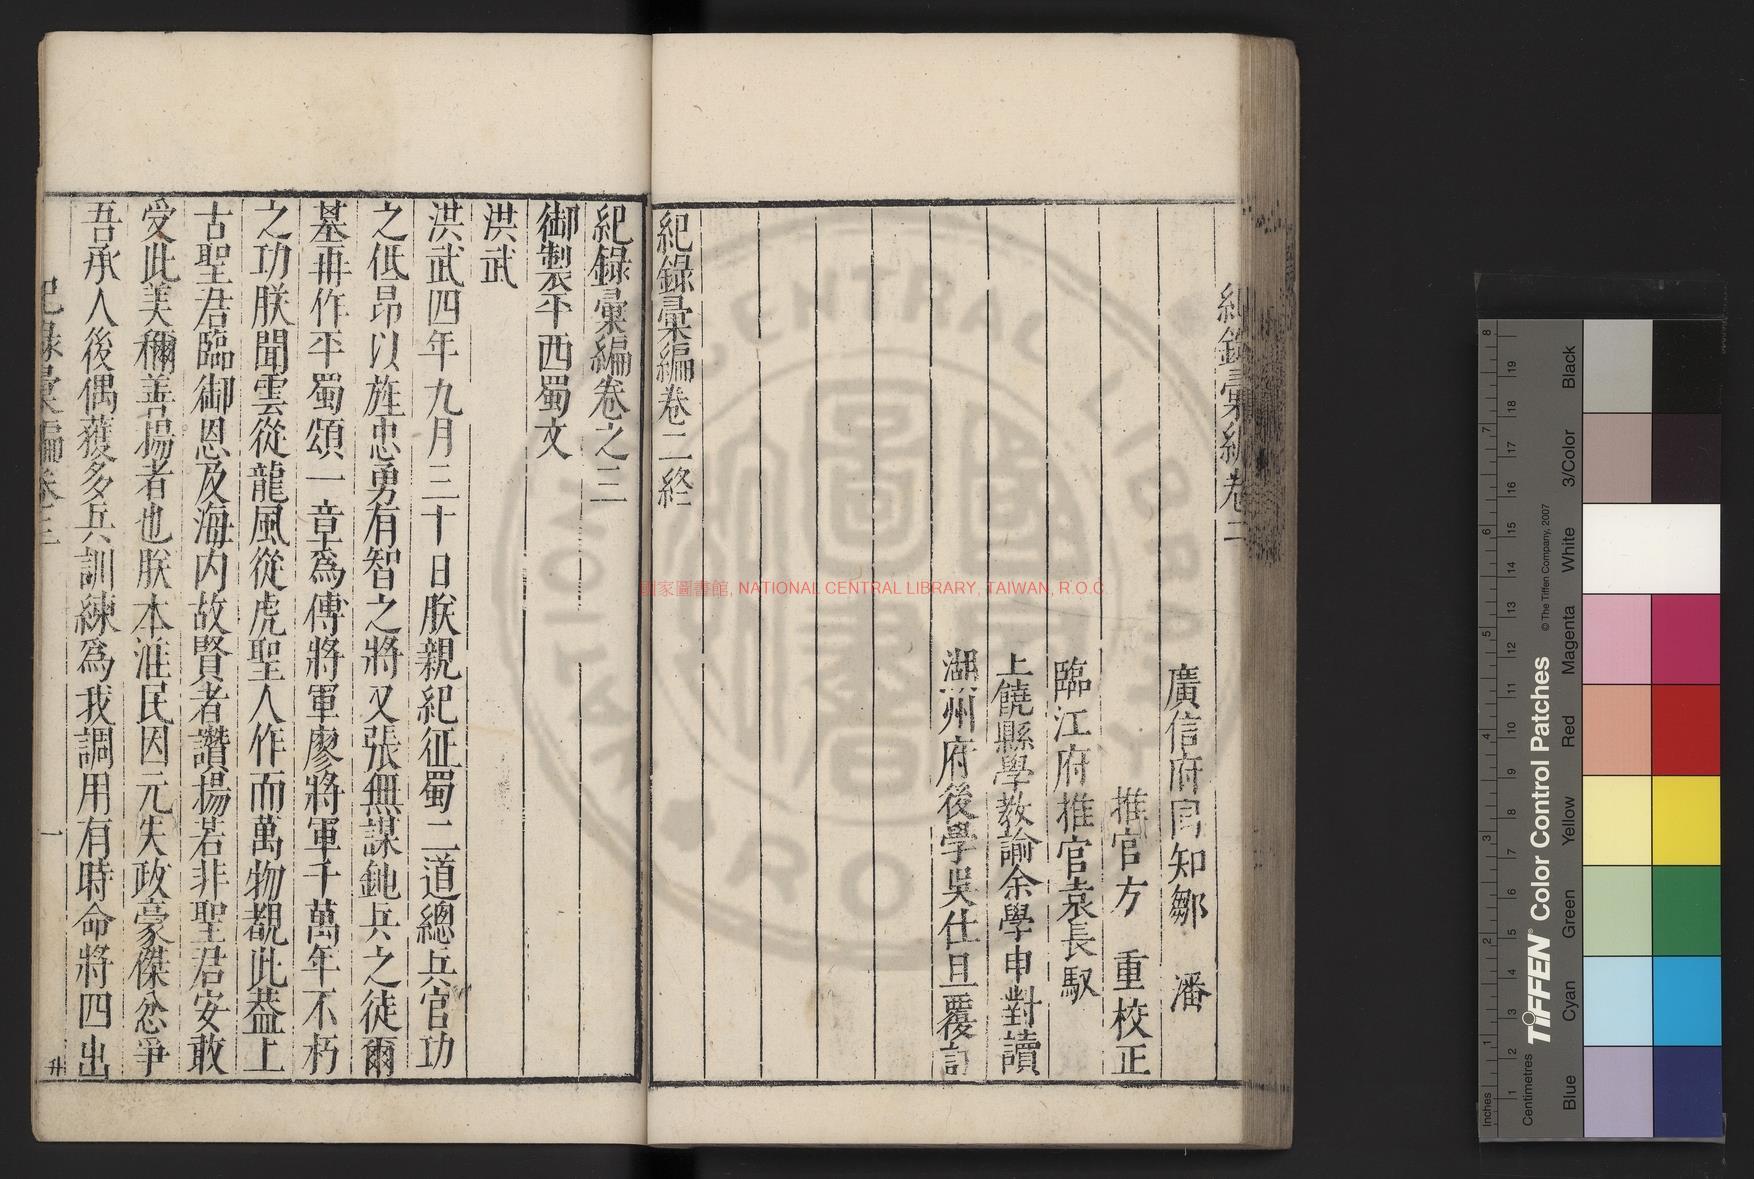 廣信府同知鄒 潘
推官方 重校正
臨江府推官袁長馭
上饒縣學教諭余學申對讀
湖州府後學吳仕旦覆訂
紀錄彙編卷二終
紀錄彙編卷之三
御製平西蜀文
洪武
洪武四年九月三十日朕親紀征蜀二道總兵官功
之低昂以旌忠勇有智之將又張無謀鈍兵之徒爾
墓再作平蜀頌一章爲傅將軍廖將軍千萬年不朽
之功朕聞雲從龍風從虎聖人作而萬物覩此葢上
古聖君臨御恩及海内故賢者讚揚若非聖君安敢
受此美穪善揚者也朕本淮民因元失政豪傑忿爭
吾承人後偶獲多兵訓練爲我調用有時命將四出
紀錄彙編卷三
一
國家圖書館, NATIONAL CENTRAL LIBRARY, TAIWAN, R.O.C.
Inches
Centimetres
TIFFEN® Color Control Patches
© The Tiffen Company, 2007
Blue
Cyan
Green
Yellow
Red
Magenta
White
3/Color
Black